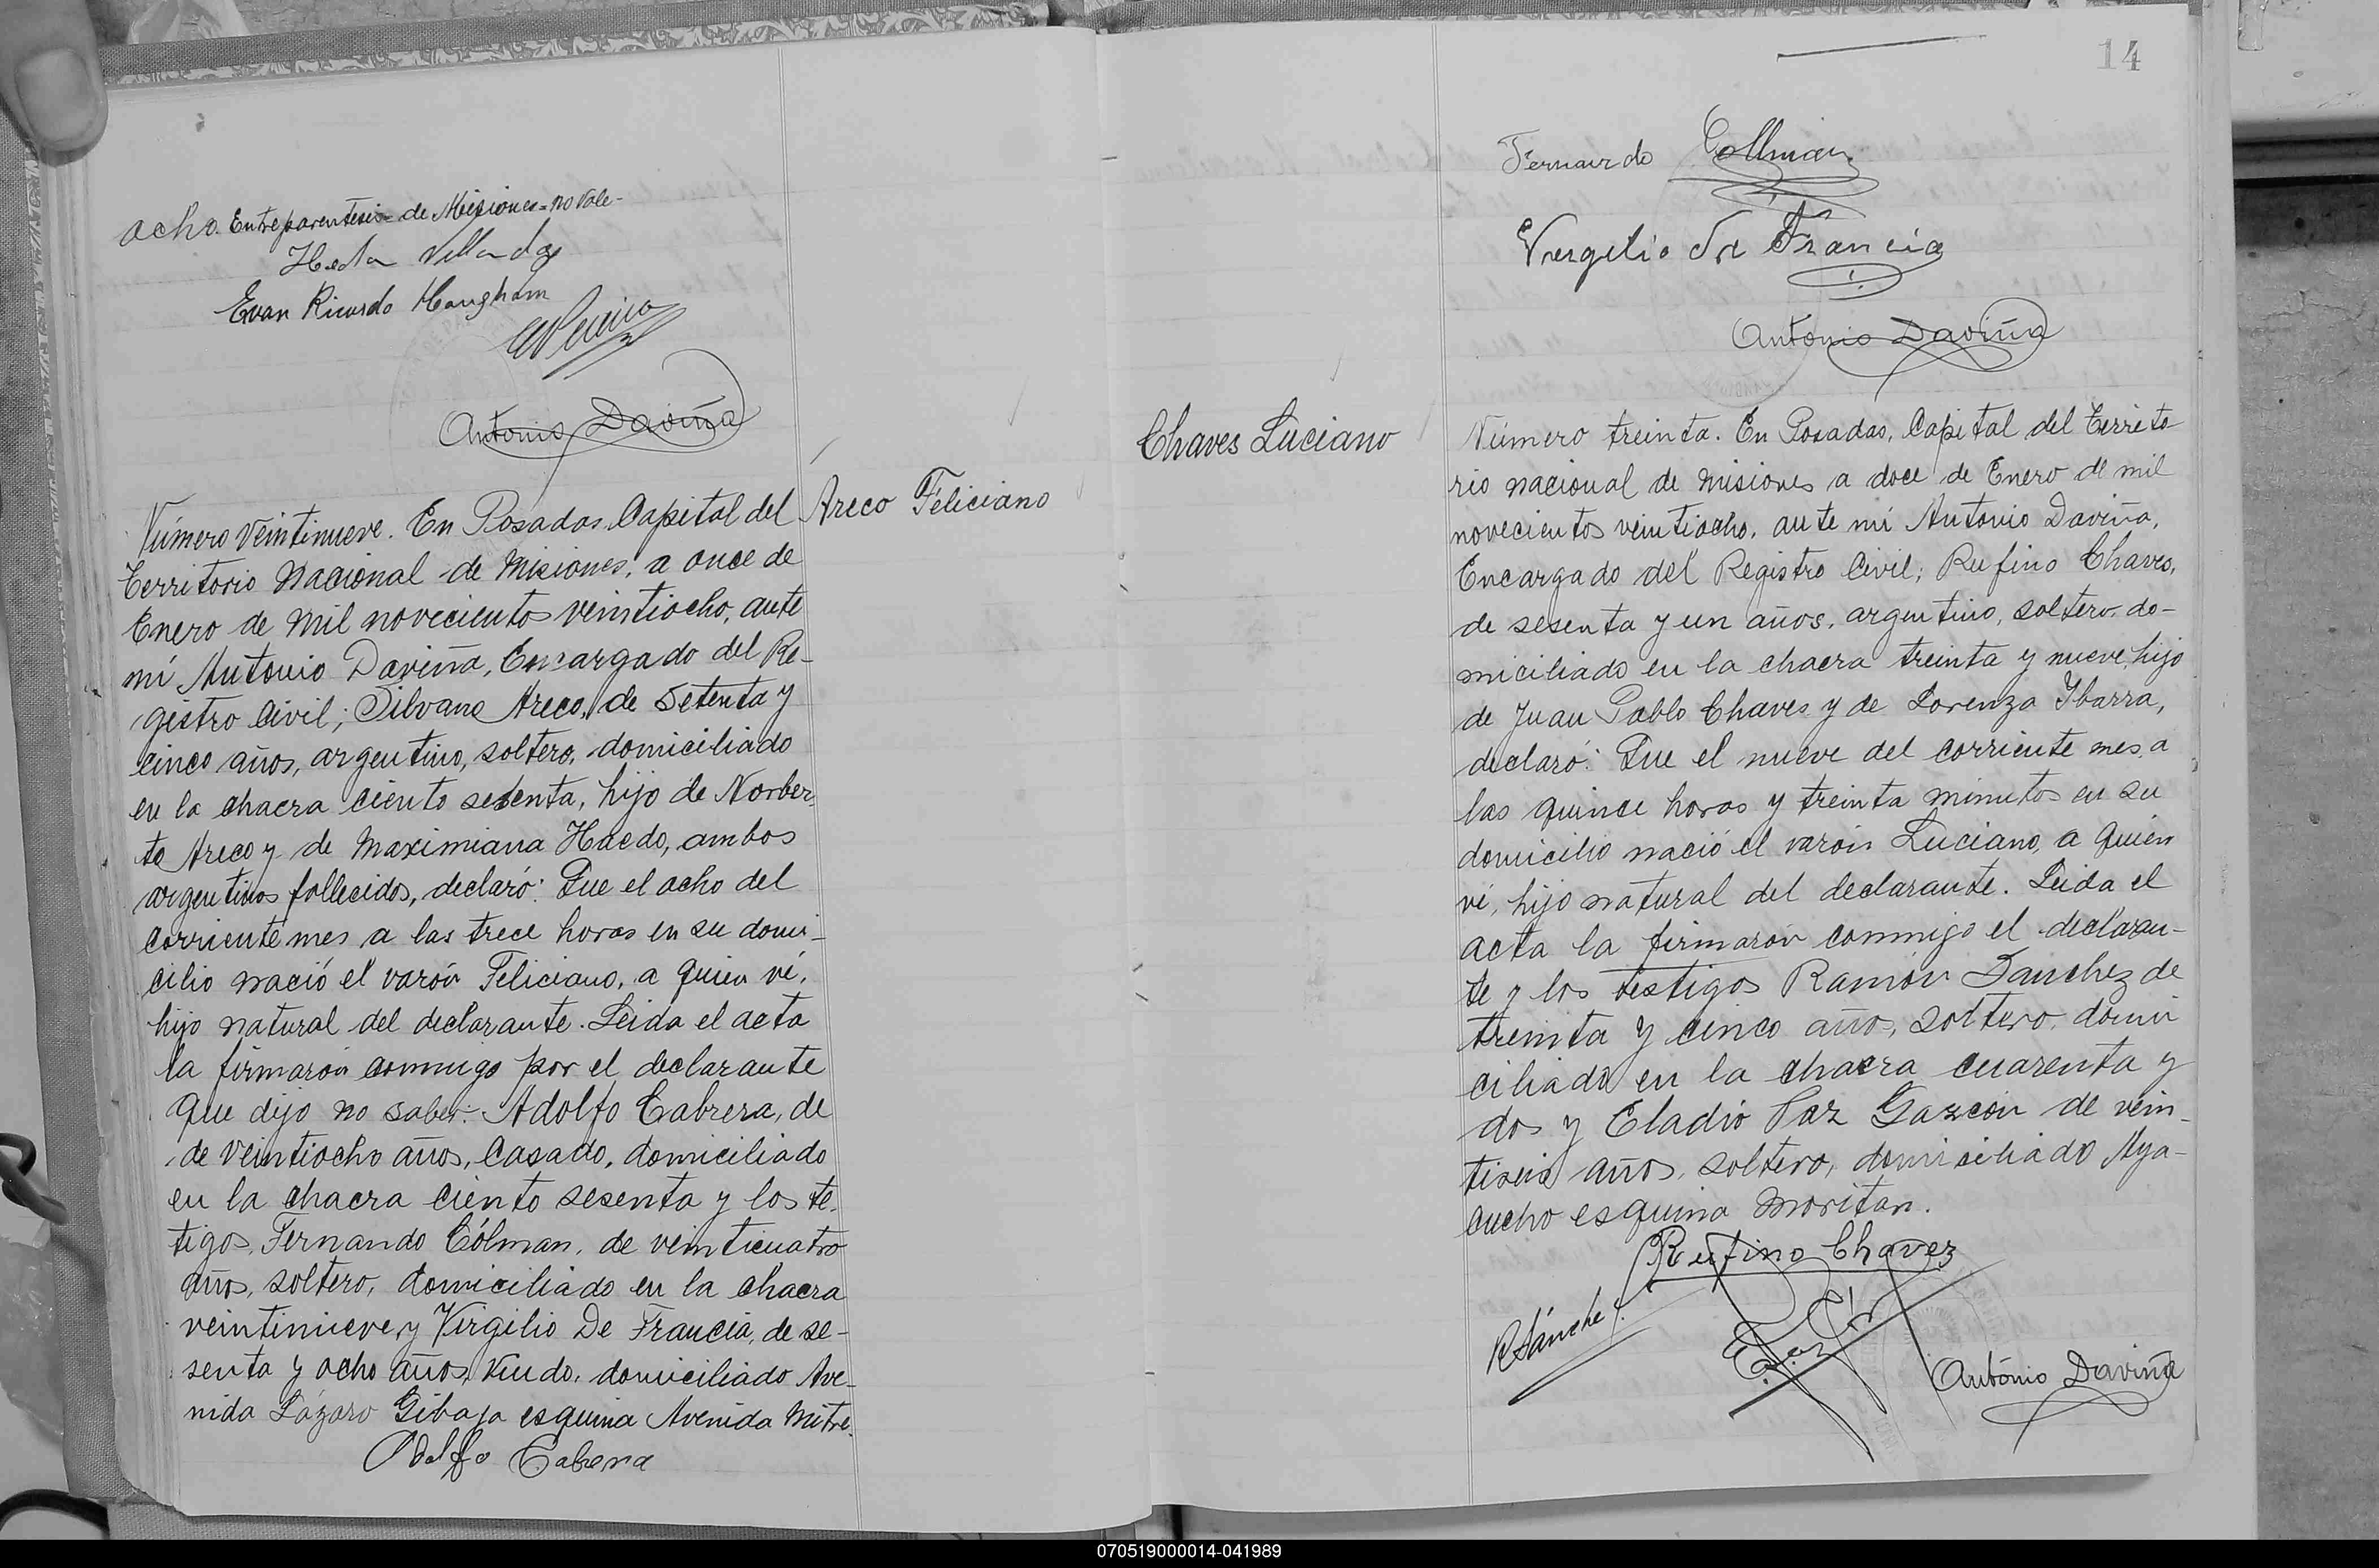 ocho. Entreparentesis - de Misiones - no vale -
Evan Ricardo Haugham
Antonio Daviña
Número veintinueve. En Posadas, Capital del
Territorio Nacional de Misiones, a once de
Enero de mil novecientos veintiocho, ante
mí Antonio Daviña, Encargado del Re-
gistro Civil; Silvano Areco, de setenta y
cinco años, argentino, soltero, domiciliado
en la chacra ciento sesenta, hijo de Norber-
to Areco y de Maximiana Haedo, ambos
argentinos fallecidos, declaró: Que el ocho del
corriente mes a las trece horas en su domi-
cilio nació el varón Feliciano, a quien ví,
hijo natural del declarante. Leida el acta
la firmaron conmigo por el declarante
que dijo no saber: Adolfo Cabrera, de
de veintiocho años, casado, domiciliado
en la chacra ciento sesenta y los te-
tigos, Fernando Cólman, de veinticuatro
años, soltero, domiciliado en la chacra
veintinueve, y Virgilio De Francia, de se-
senta y ocho años, viudo, domiciliado Ave-
nida Lázaro Gibaja esquina Avenida Mitre.
Adolfo Cabrera
Areco Feliciano
14
Fernando Collman
Virgilio De Francia
Antonio Daviña
Chaves Luciano
Número treinta. En Posadas, Capital del Territo
rio nacional de Misiones a doce de Enero de mil
novecientos veintiocho, ante mí Antonio Daviña,
Encargado del Registro Civil; Rufino Chaves,
de sesenta y un años, argentino, soltero, do-
miciliado en la chacra treinta y nueve, hijo
de Juan Pablo Chaves y de Lorenza Ybarra,
declaró: Que el nueve del corriente mes, a
las quince horas y treinta minutos en su
domicilio nació el varón Luciano, a quien
ví, hijo natural del declarante. Leida el
acta la firmaron conmigo el declaran-
te y los testigos Ramón Sanchez de
treinta y cinco años, soltero, domi
ciliado en la chacra cuarenta y
dos y Eladio Paz Gazcón de vein-
tiseis años, soltero, domiciliado Aya-
cucho esquina Moritan.
Rufino Chavez
R Sánchez
Antonio Daviña
070519000014-041989